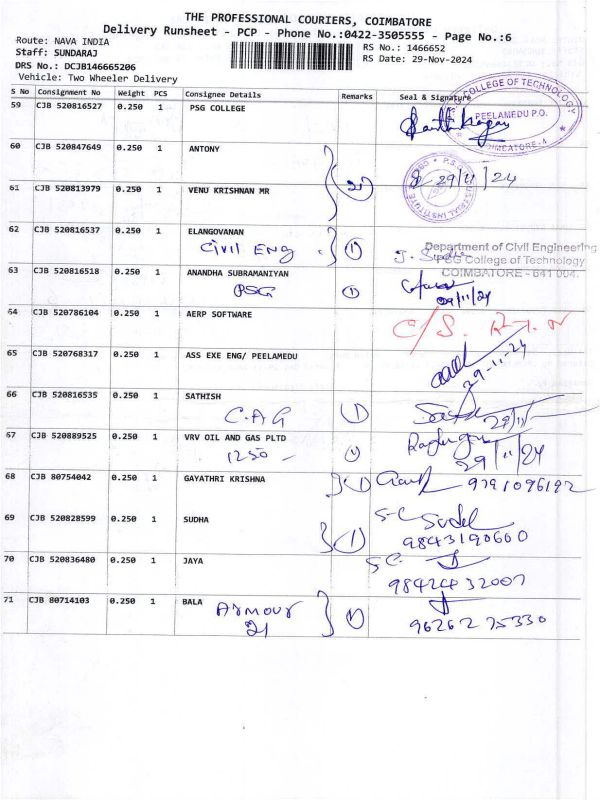 THE PROFESSIONAL COURIERS, COIMBATORE
Delivery Runsheet - PCP - Phone No.:0422-3505555 - Page No.:6
Route: NAVA INDIA
RS No.: 1466652
Staff: SUNDARAJ
RS Date: 29-Nov-2024
DRS No.: DCJB146665206
Vehicle: Two Wheeler Delivery
S No Consignment No Weight PCS Consignee Details Remarks Seal & Signature
59 CJB 520816527 0.250 1 PSG COLLEGE
COLLEGE OF TECHNOLOGY
PEELAMEDU P.O.
COIMBATORE-4
60 CJB 520847649 0.250 1 ANTONY
29/11/24
61 CJB 520813979 0.250 1 VENU KRISHNAN MR
62 CJB 520816537 0.250 1 ELANGOVANAN
CIVIL ENG 1
Department of Civil Engineering
PSG College of Technology
COIMBATORE - 641 004.
63 CJB 520816518 0.250 1 ANANDHA SUBRAMANIYAN
PSG 1
29/11/24
64 CJB 520786104 0.250 1 AERP SOFTWARE
C/S. R.T.N
65 CJB 520768317 0.250 1 ASS EXE ENG/ PEELAMEDU
29-11-24
66 CJB 520816535 0.250 1 SATHISH
C.A.G 1
29/11/
67 CJB 520889525 0.250 1 VRV OIL AND GAS PLTD
1250 - 1
29/11/24
68 CJB 80754042 0.250 1 GAYATHRI KRISHNA
1 9791096192
69 CJB 520828599 0.250 1 SUDHA
1 9843190660
70 CJB 520836480 0.250 1 JAYA
S.C.
9842432007
71 CJB 80714103 0.250 1 BALA ARMOUR
21 1 9626275330